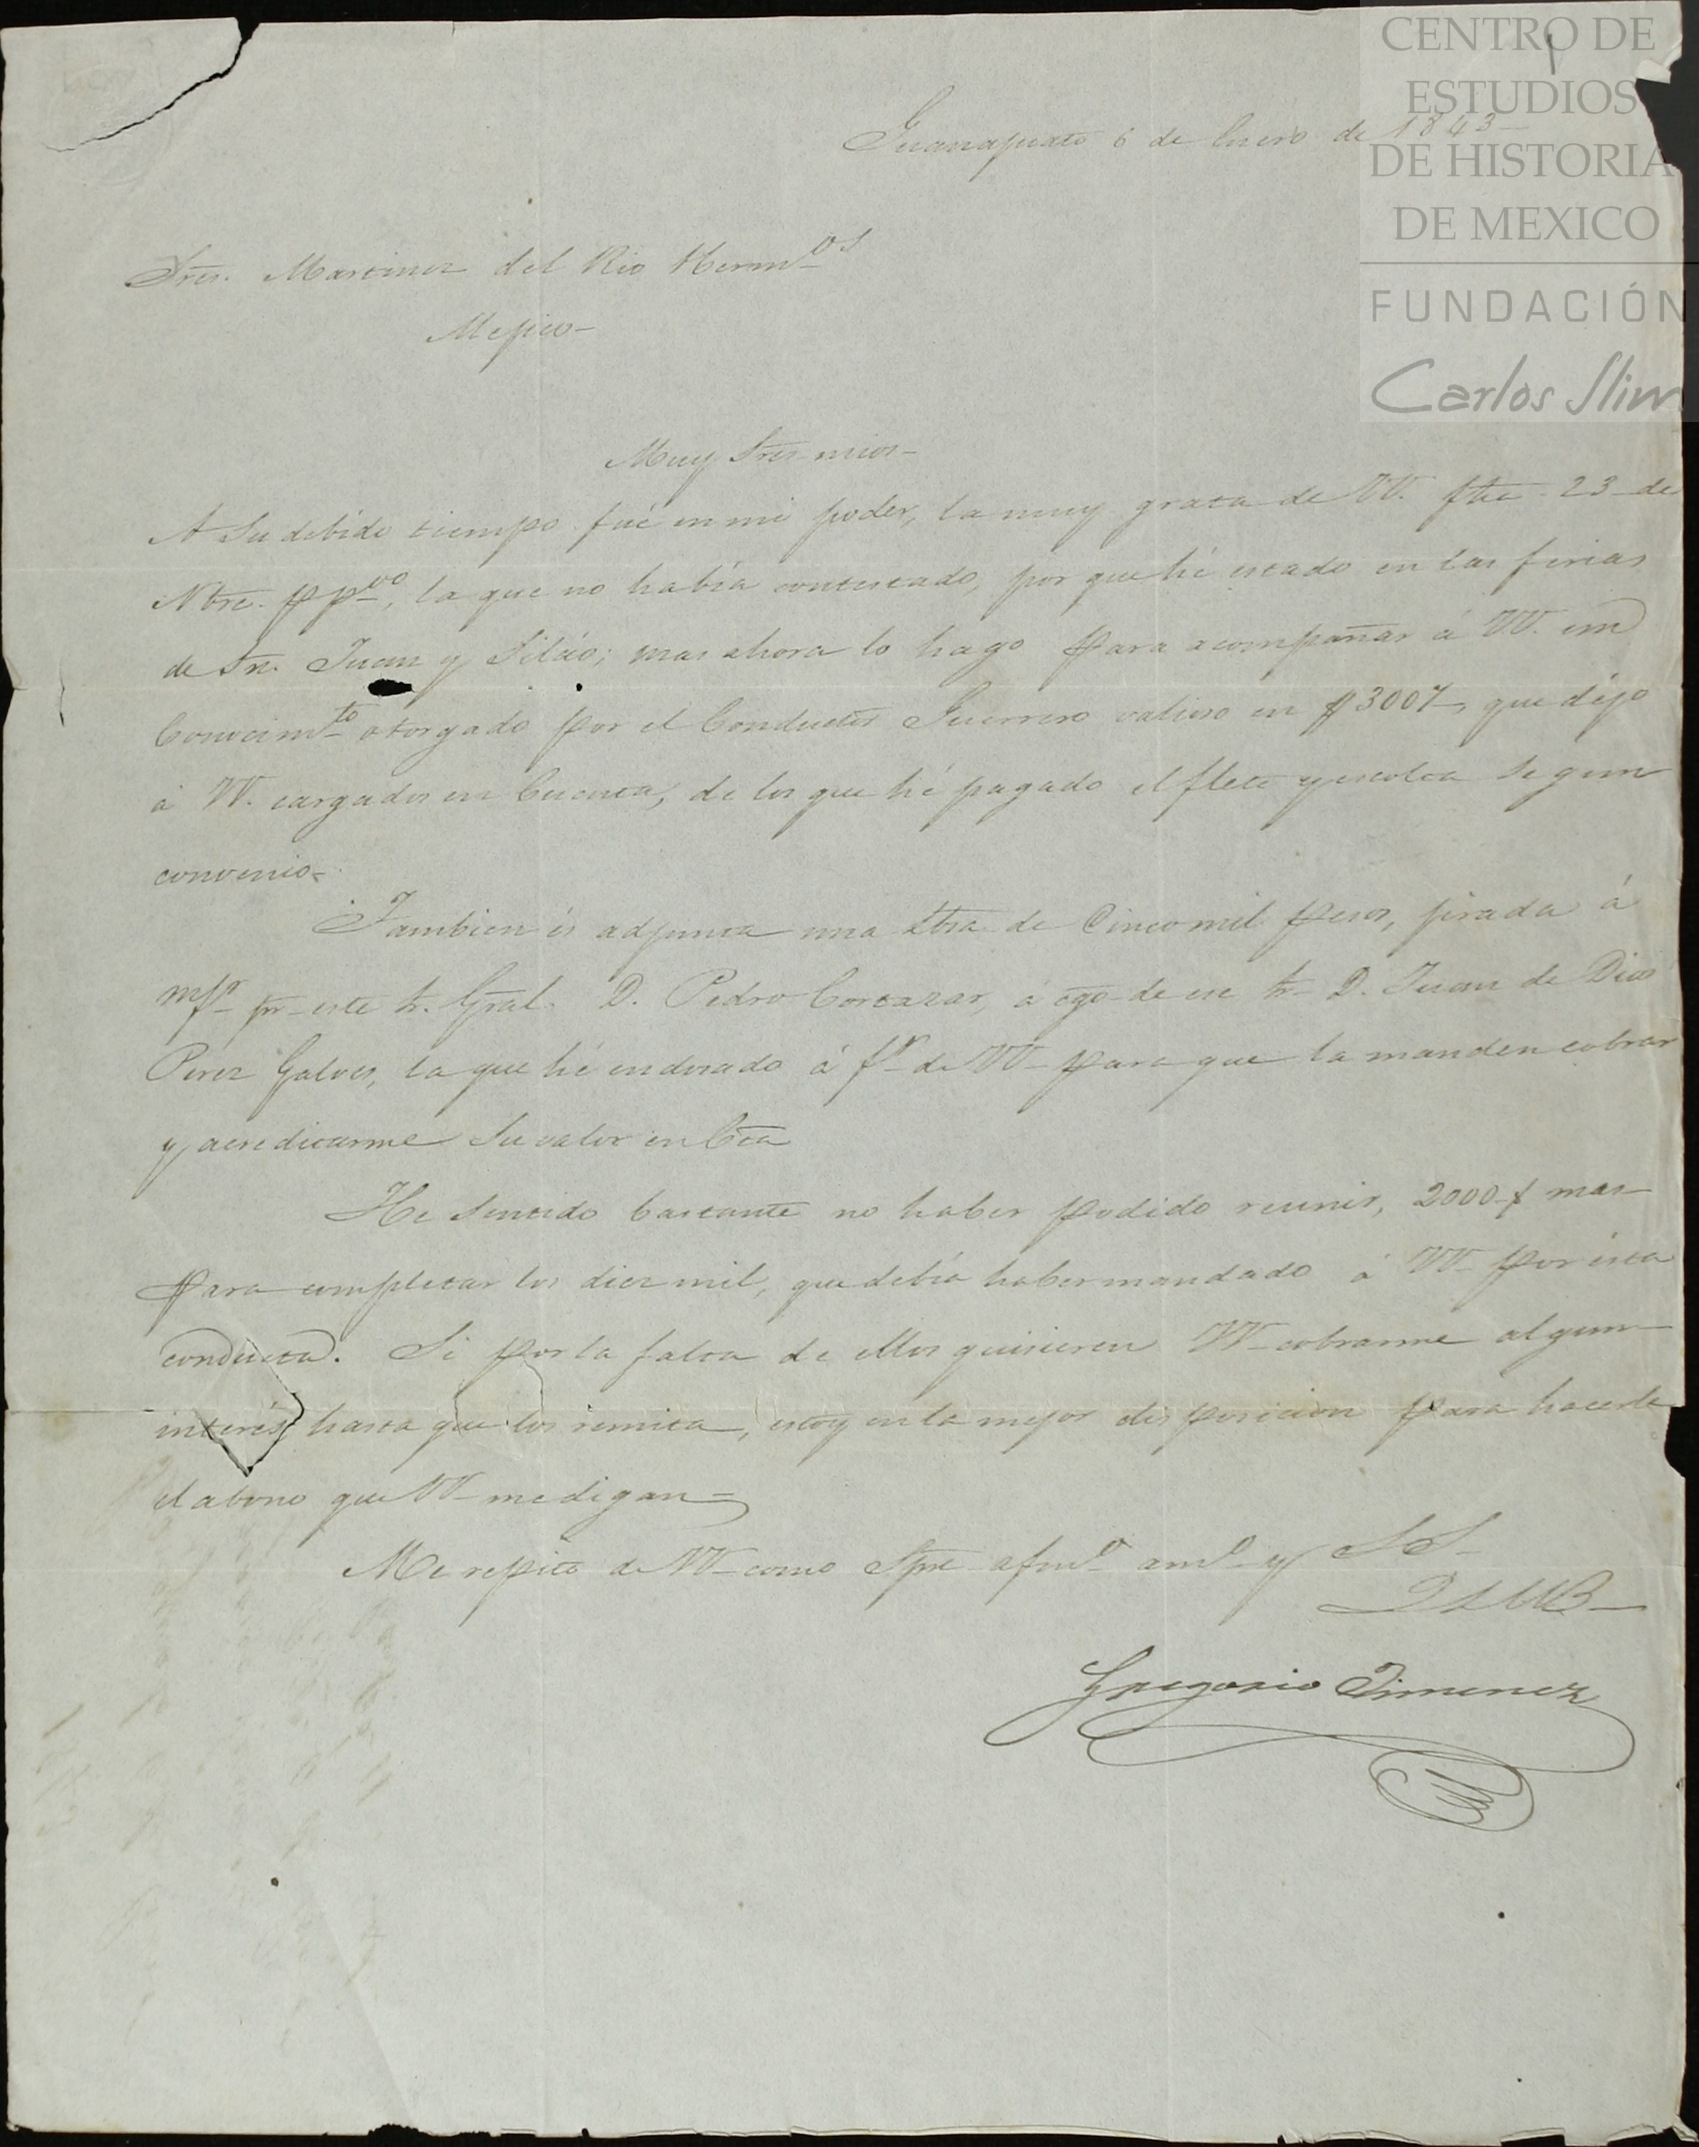 CENTRO DE
ESTUDIOS
DE HISTORIA
DE MEXICO
FUNDACIÓN
Carlos Slim
Guanajuato 6 de Enero de 1843
Sres. Martinez del Rio Hermos
Mejico
Muy Sres mios
A su debido tiempo fué en mi poder, la muy grata de VV. fha 23 de
Nbre. ppdo, la que no había contestado, por que hé estado en las ferias
de Sn. Juan y Siláo; mas ahora lo hago para acompañar á VV. un
Conocimto otorgado por el Conductor Guerrero valioso en $3007, que déjo
á VV. cargados en Cuenta, de los que hé pagado el flete y escolta segun
convenio.
Tambien és adjunta una Ltra de Cinco mil pesos, jirada á
mfr pr este Sr. Gral. D. Pedro Cortazar, á cgo de ese Sr D. Juan de Dios
Perez Galvez, la que hé endosado á fr de VV para que la manden cobrar
y acreditarme su valor en Cta
He sentido bastante no haber podido reunir, 2000 $ mas
para completar los diez mil, que debía haber mandado á VV por ésta
conducta. Si por la falta de ellos quisieren VV cobrarme algun
interés, hasta que los remita, estoy en la mejor disposicion para hacerle
el abono que VV me digan
Me repito de VV como Spre afmo amo y SS
QSMB
Gregorio Jimenez